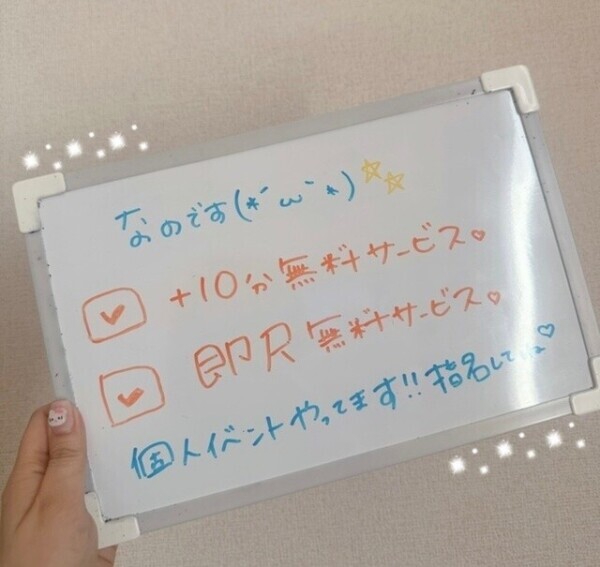 なのです(*´ω`*)☆☆
+10分無料サービス♡
即尺無料サービス♡
個人イベントやってます!!指名して♡